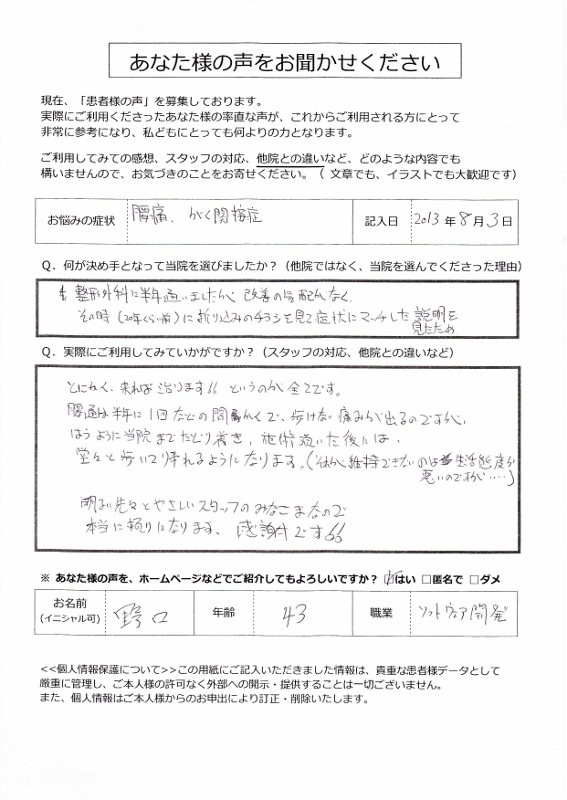 あなた様の声をお聞かせください
現在、「患者様の声」を募集しております。
実際にご利用くださったあなた様の率直な声が、これからご利用される方にとって
非常に参考になり、私どもにとっても何よりの力となります。
ご利用してみての感想、スタッフの対応、他院との違いなど、どのような内容でも
構いませんので、お気づきのことをお寄せください。（ 文章でも、イラストでも大歓迎です）
お悩みの症状 腰痛、がく関接症 記入日 2013 年 8 月 3 日
Q．何が決め手となって当院を選びましたか？（他院ではなく、当院を選んでくださった理由）
整形外科に半年通いましたが、改善の気配がなく、
その時（20年くらい前）に折り込みのチラシを見て症状にマッチした説明を
見たため
Q．実際にご利用してみていかがですか？（スタッフの対応、他院との違いなど）
とにかく、来れば治ります!! というのが全てです。
腰痛は半年に1回などの間かくで、歩けない痛みが出るのですが、
はうように当院までたどり着き、施術頂いた後には、
堂々と歩いて帰れるようになります。（それが維持できないのは生活態度が
悪いのですが‥‥）
明るい先々とやさしいスタッフのみなさまなので
本当に頼りになります。感謝です!!
※ あなた様の声を、ホームページなどでご紹介してもよろしいですか？ ☑はい □匿名で □ダメ
お名前 野口 年齢 43 職業 ソフトウェア開発
(イニシャル可)
<<個人情報保護について>>この用紙にご記入いただきました情報は、貴重な患者様データとして
厳重に管理し、ご本人様の許可なく外部への開示・提供することは一切ございません。
また、個人情報はご本人様からのお申出により訂正・削除いたします。